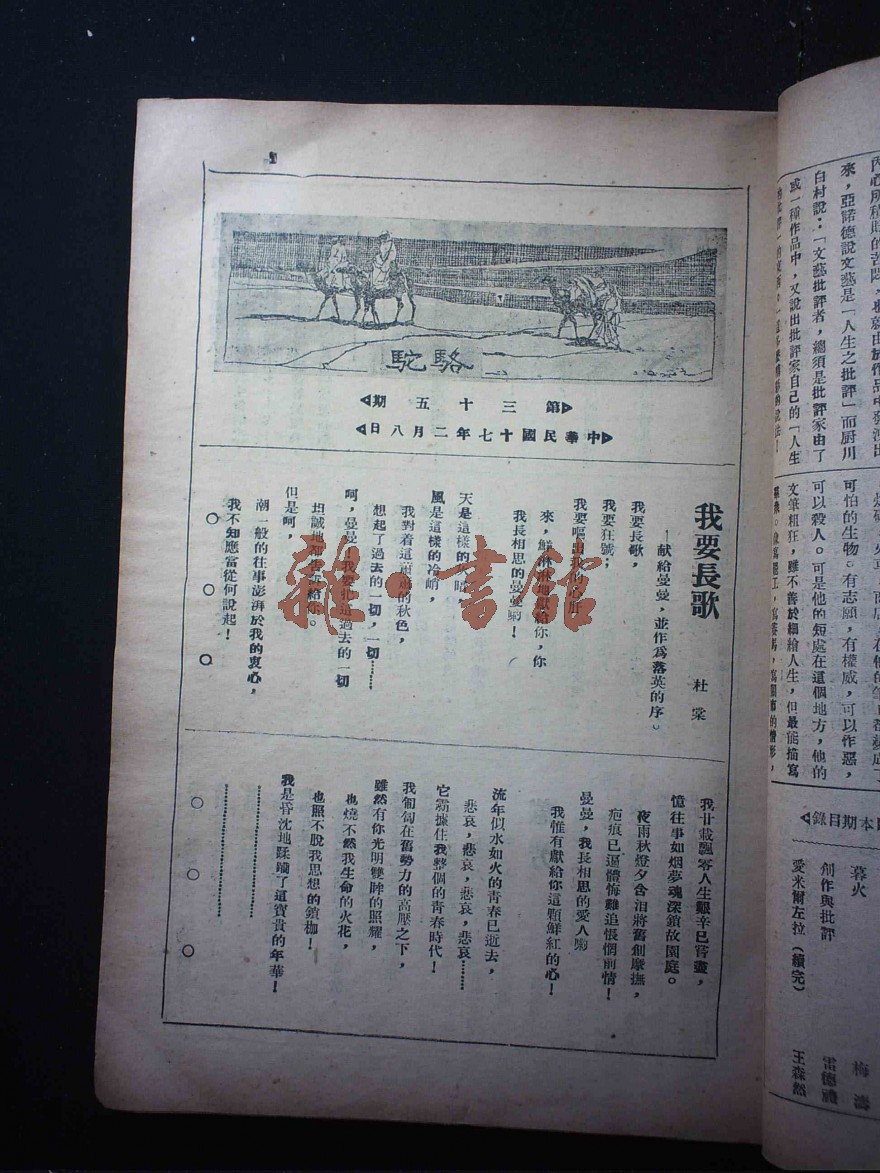 駱駝
第三十五期
中華民國十七年二月八日
我要長歌
杜棠
—献給曼曼，並作爲落英的序。
我要長歌，
我要狂號；
我要嘔出我的心肝
來，鮮淋淋地獻給你，你
我長相思的曼曼喲！
天是這樣的
風是這樣的冷峭，
我對着這 的秋色，
想起了過去的一切，一切……
呵，曼曼，我要把這過去的一切
坦誠地都告訴給你。
但是呵，
潮一般的往事澎湃於我的衷心，
我不知應當從何說起！
○ ○ ○
我廿載飄零人生艱辛已嘗盡，
憶往事如烟夢魂深鎖故園庭。
夜雨秋燈夕含泪將舊創摩撫，
疤痕已逼體悔難追悵惘前情！
曼曼，我長相思的愛人喲
我惟有獻給你這顆鮮紅的心！
流年似水如火的青春已逝去，
悲哀，悲哀，悲哀，悲哀……
它霸據住我整個的青春時代！
我匍匐在舊勢力的高壓之下，
雖然有你光明雙眸的照耀，
也燒不然我生命的火花，
也照不脫我思想的鎖枷！
我是昏沈地蹂躪了這寶貴的年華！
………………
………………
○ ○ ○
雜·書館
來，亞諾德說文藝是「人生之批評」而厨川
白村說：「文藝批評者，總須是批評家由了
或一種作品中，又說出批評家自己的「人生
可怕的生物。有志願，有權威，可以作惡，
可以殺人。可是他的短處在這個地方，他的
文筆粗狂，雖不善於細繪人生，但最能描寫
本期目錄
暮火 梅濤
創作與批評 雷德
愛米爾左拉（續完） 王森然